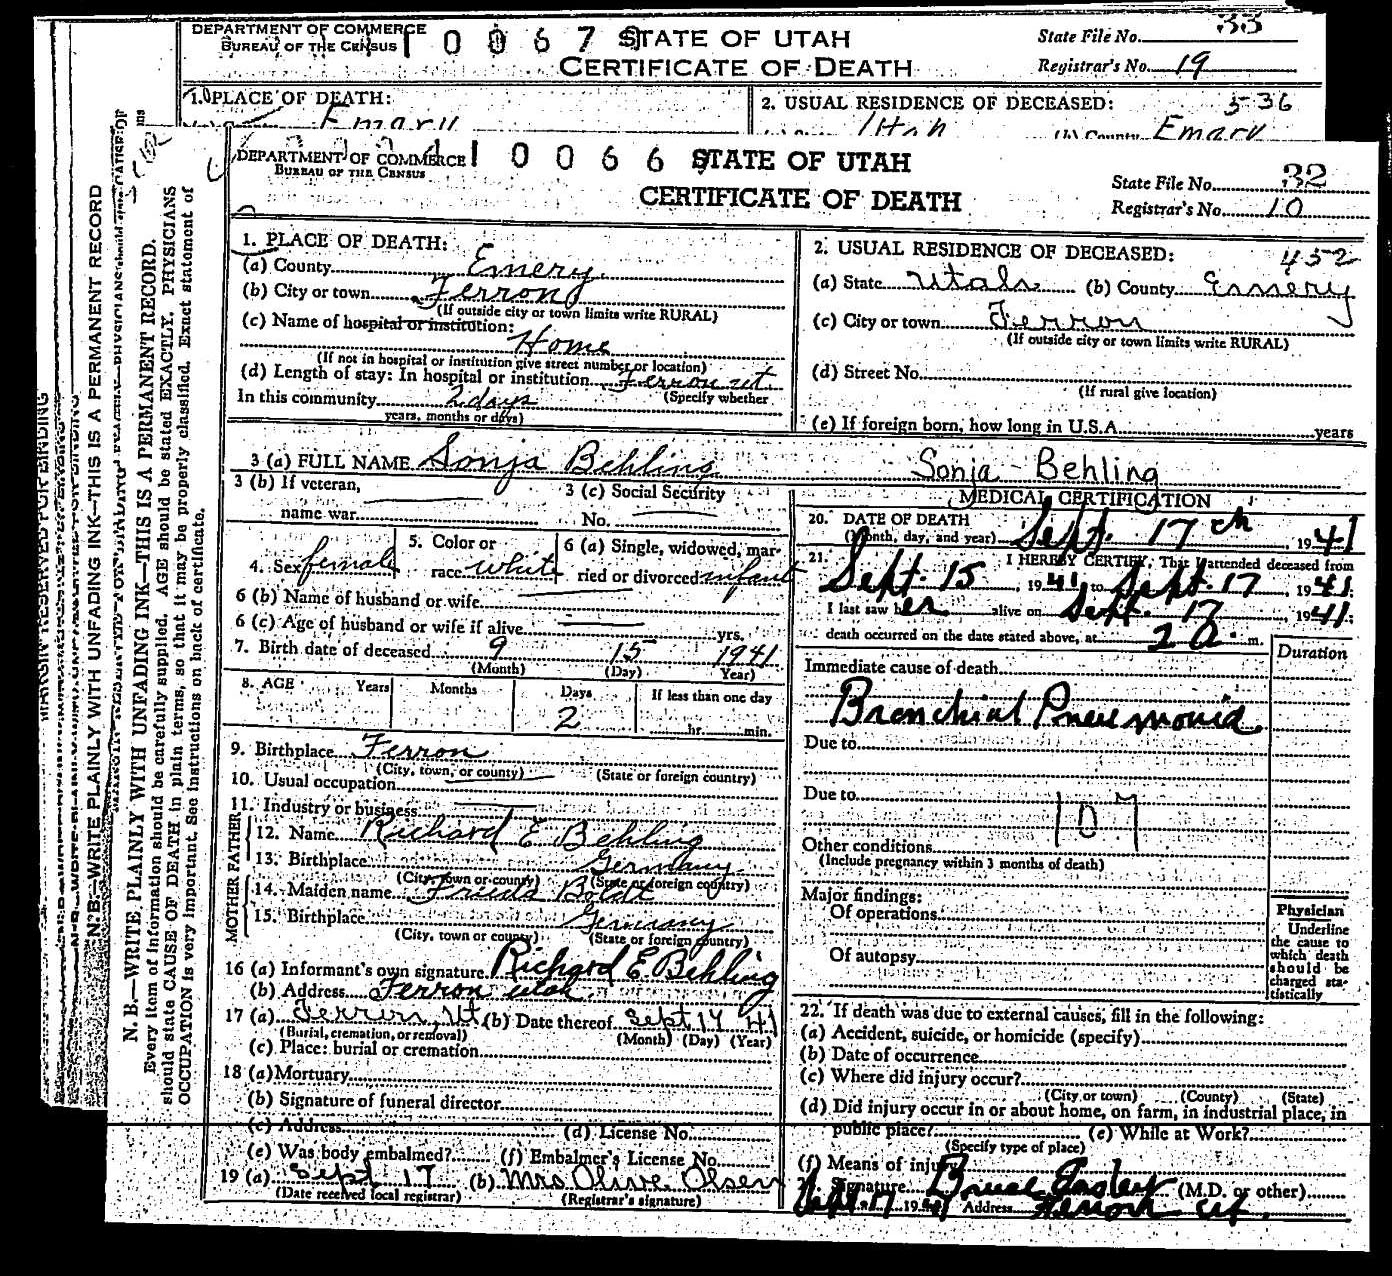 DEPARTMENT OF COMMERCE
BUREAU OF THE CENSUS
0 0 6 7 9
STATE OF UTAH
CERTIFICATE OF DEATH
State File No. 33
Registrar's No. 19
1. PLACE OF DEATH:
Emery
2. USUAL RESIDENCE OF DECEASED: 536
Utah (b) County Emery
DEPARTMENT OF COMMERCE
BUREAU OF THE CENSUS
1 0 0 6 6 9
STATE OF UTAH
CERTIFICATE OF DEATH
State File No. 32
Registrar's No. 10
1. PLACE OF DEATH:
(a) County Emery
(b) City or town Ferron
(If outside city or town limits write RURAL)
(c) Name of hospital or institution:
Home
(If not in hospital or institution give street number or location)
(d) Length of stay: In hospital or institution Ferron ut
(Specify whether
In this community 2 days
years, months or days)
2. USUAL RESIDENCE OF DECEASED: 452
(a) State Utah (b) County Emery
(c) City or town Ferron
(If outside city or town limits write RURAL)
(d) Street No.
(If rural give location)
(e) If foreign born, how long in U.S.A. years
3 (a) FULL NAME Sonja Behling Sonja Behling
3 (b) If veteran,
name war
3 (c) Social Security
No.
4. Sex female
5. Color or
race white
6 (a) Single, widowed, mar-
ried or divorced infant
6 (b) Name of husband or wife
6 (c) Age of husband or wife if alive yrs.
7. Birth date of deceased 9 15 1941
(Month) (Day) Year)
8. AGE Years Months Days If less than one day
2 hr. min.
9. Birthplace Ferron
(City, town, or county) (State or foreign country)
10. Usual occupation
11. Industry or business
FATHER
12. Name Richard E Behling
13. Birthplace Germany
(City, town or county) (State or foreign country)
MOTHER
14. Maiden name Frieda Boldt
15. Birthplace Germany
(City, town or county) (State or foreign country)
16 (a) Informant's own signature Richard E. Behling
(b) Address Ferron utah
17 (a) Ferron, Ut. (b) Date thereof Sept 17 41
(Burial, cremation, or removal) (Month) (Day) (Year)
(c) Place: burial or cremation
18 (a) Mortuary
(b) Signature of funeral director
(c) Address (d) License No.
(e) Was body embalmed? (f) Embalmer's License No.
19 (a) Sept 17 (b) Mrs Olive Olsen
(Date received local registrar) (Registrar's signature)
MEDICAL CERTIFICATION
20. DATE OF DEATH
(Month, day, and year) Sept. 17th, 1941
21. I HEREBY CERTIFY, That I attended deceased from
Sept. 15, 1941, to Sept. 17, 1941;
I last saw her alive on Sept. 17 1941;
death occurred on the date stated above, at 2 a. m.
Duration
Immediate cause of death
Bronchial Pneumonia
Due to
Due to
107
Other conditions
(Include pregnancy within 3 months of death)
Major findings:
Of operations
Of autopsy
Physician
Underline
the cause to
which death
should be
charged sta-
tistically
22. If death was due to external causes, fill in the following:
(a) Accident, suicide, or homicide (specify)
(b) Date of occurrence
(c) Where did injury occur?
(City or town) (County) (State)
(d) Did injury occur in or about home, on farm, in industrial place, in
public place? (e) While at Work?
(Specify type of place)
(f) Means of injury
Signature Bruce Easley (M.D. or other)
Sept. 17 1941 Address Ferron Ut.
N. B.—WRITE PLAINLY WITH UNFADING INK—THIS IS A PERMANENT RECORD
N. B.—WRITE PLAINLY WITH UNFADING INK—THIS IS A PERMANENT RECORD.
Every item of information should be carefully supplied. AGE should be stated EXACTLY. PHYSICIANS
should state CAUSE OF DEATH in plain terms, so that it may be properly classified. Exact statement of
OCCUPATION is very important. See instructions on back of certificate.